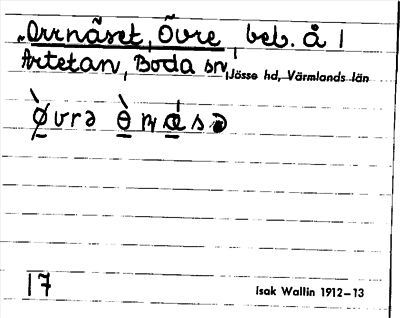 „Orrnäset, Övre, beb. å 1
Artetan, Boda sn, Jösse hd, Värmlands län
17
Isak Wallin 1912–13